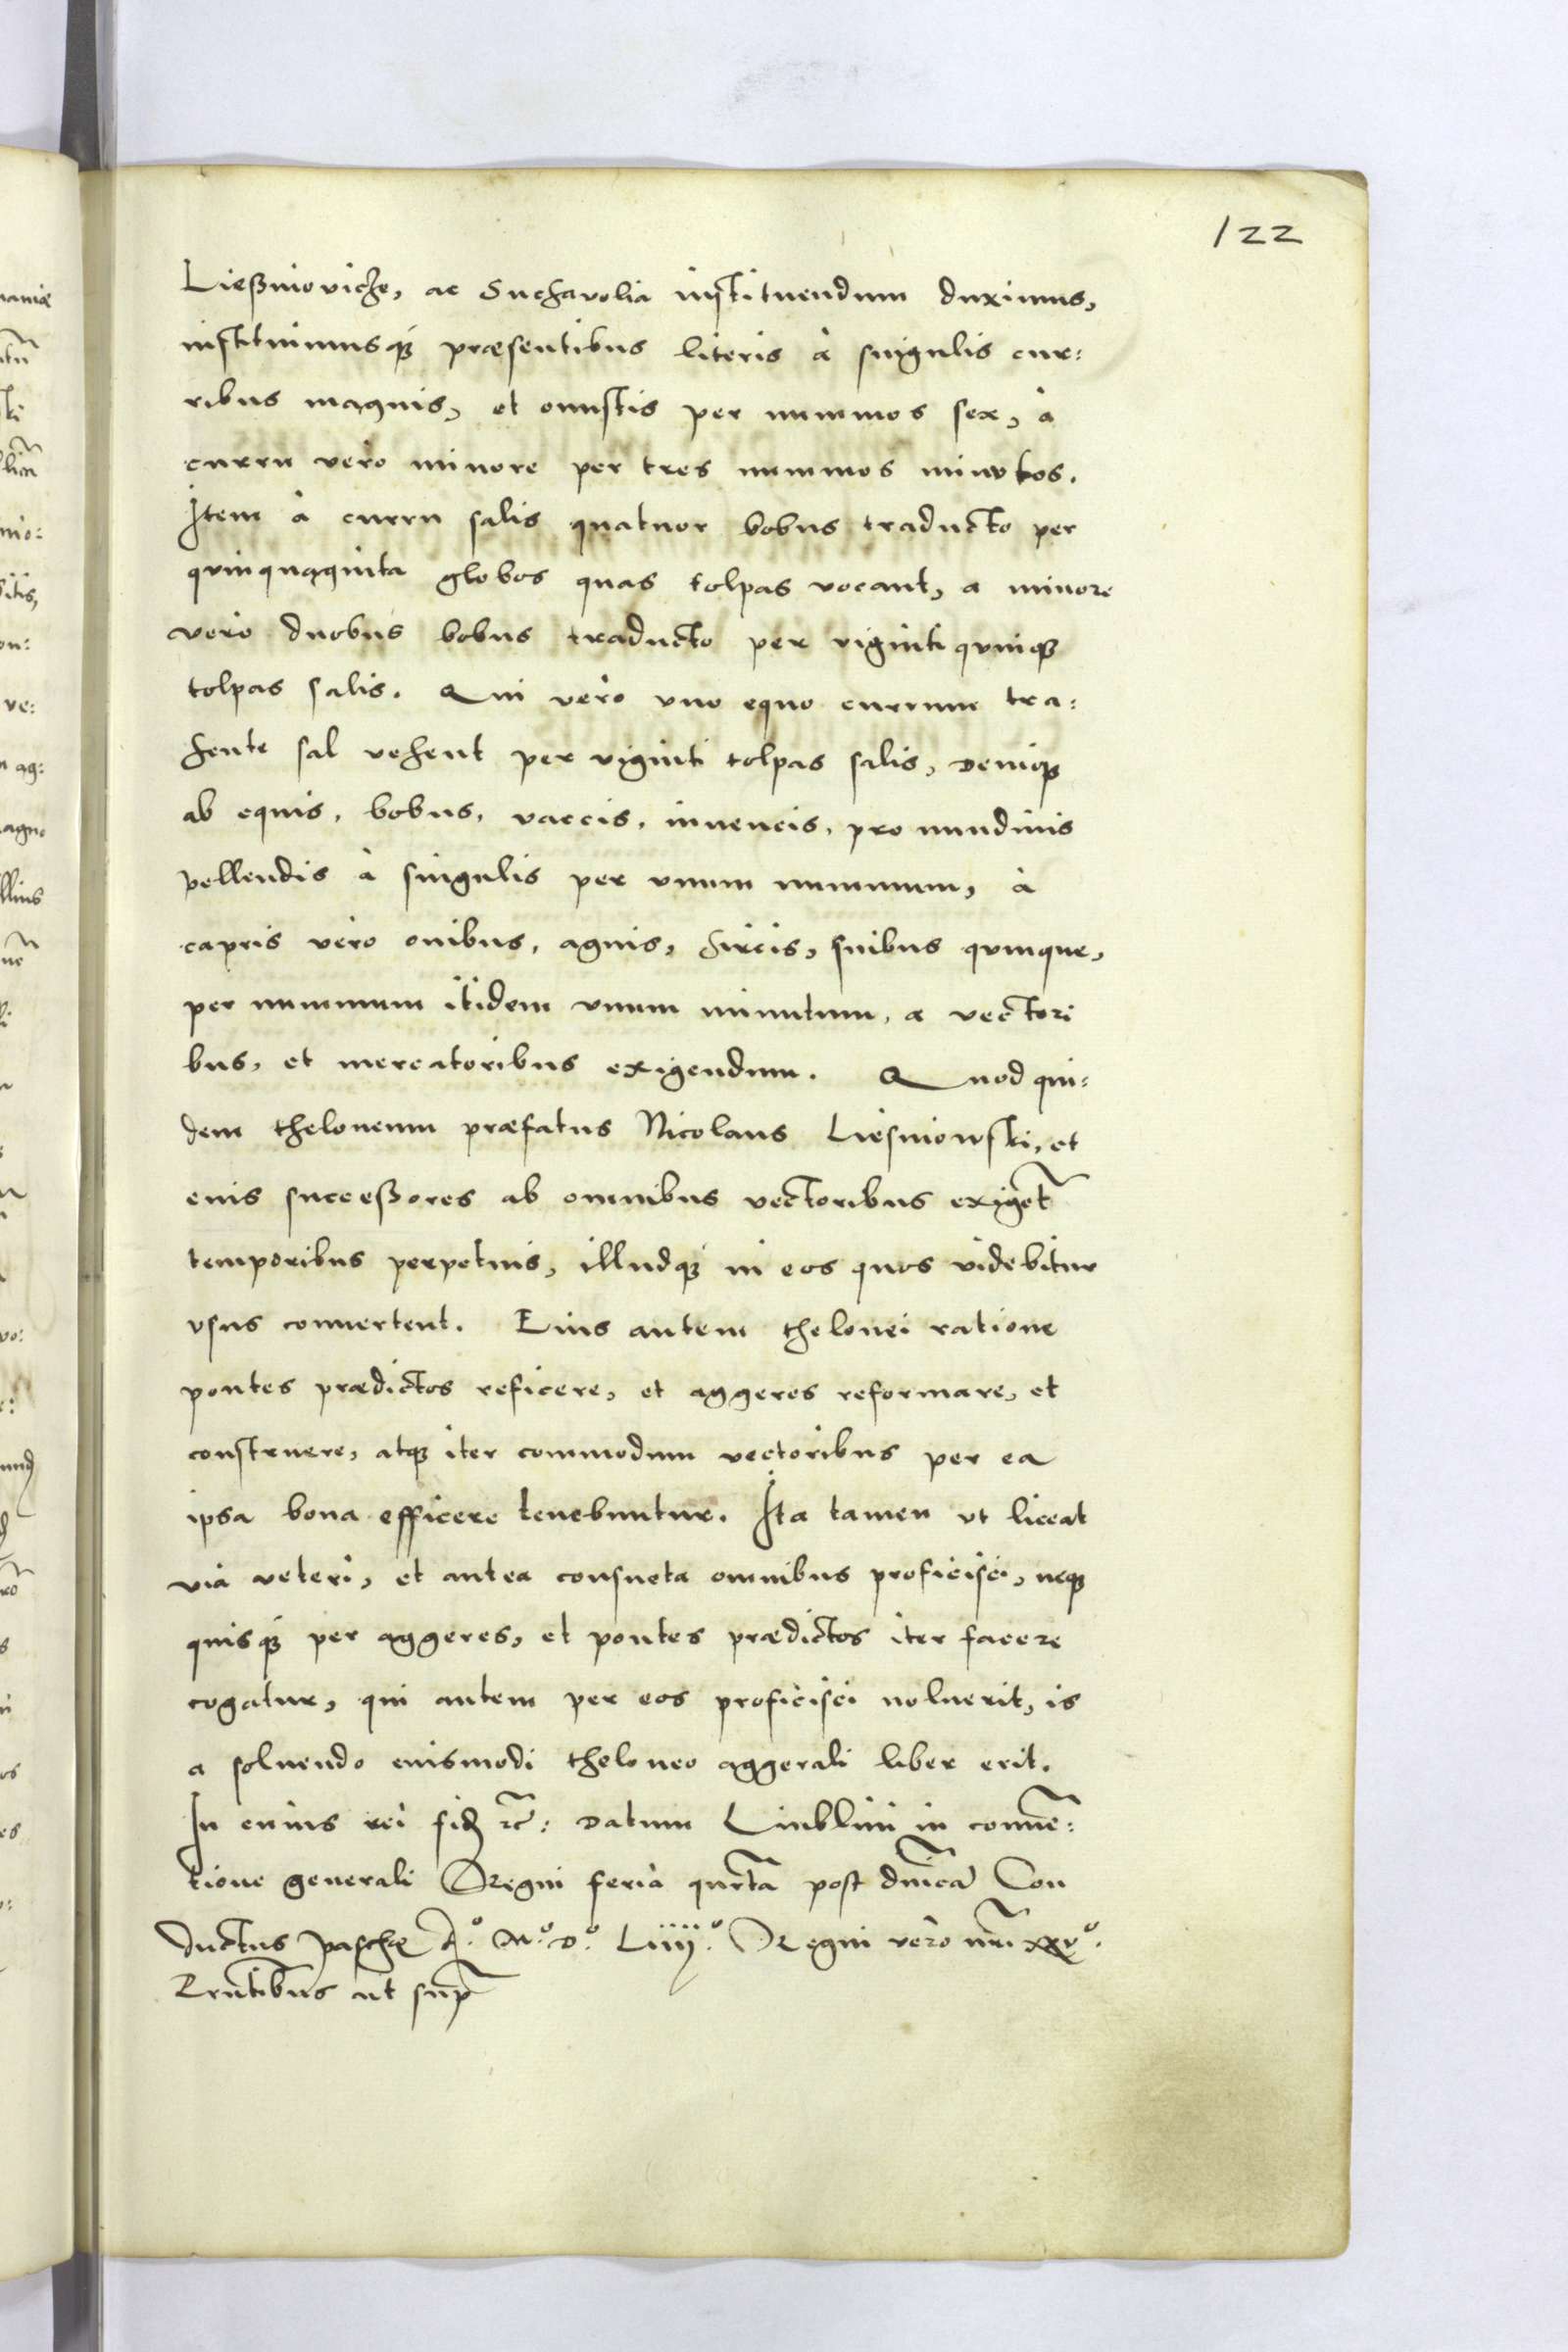 122
Ließniovicze, ac Suchavolia instituendum duximus,
instituimusque præsentibus literis à singulis cur:
ribus magnis, et onustis per nummos sex, à
curru vero minore per tres nummos minutos.
Item à curru salis quatuor bobus traducto per
quinquaginta globos quas tolpas vocant, a minore
vero duobus bobus traducto per viginti quinque
tolpas salis. Qui vero uno equo currum tra:
hente sal vehent per viginti tolpas salis, denique
ab equis, bobus, vaccis, iuvencis, pro nundinis
pellendis à singulis per unum nummum, à
capris vero ovibus, agnis, hircis, suibus quinque,
per nummum itidem unum minutum, a vectori
bus, et mercatoribus exigendum. Quod qui:
dem theloneum præfatus Nicolaus Liesniowski, et
eius successores ab omnibus vectoribus exiget
temporibus perpetuis, illudque in eos quos videbitur
usus convertent. Eius autem thelonei ratione
pontes prædictos reficere, et aggeres reformare, et
construere, atque iter commodum vectoribus per ea
ipsa bona efficere tenebuntur. Ita tamen ut liceat
via veteri, et antea consueta omnibus proficisci, neque
quisque per aggeres, et pontes prædictos iter facere
cogatur, qui autem per eos proficisci noluerit, is
a solvendo eiusmodi theloneo aggerali liber erit.
In cuius rei fid etc: Datum Liublini in conven:
tione generali Regni feria qurta post dnicā Con
ductus Paschæ A.º M.º D.º Liiij.º Regni vero nri xxvº.
Prntibus ut sup